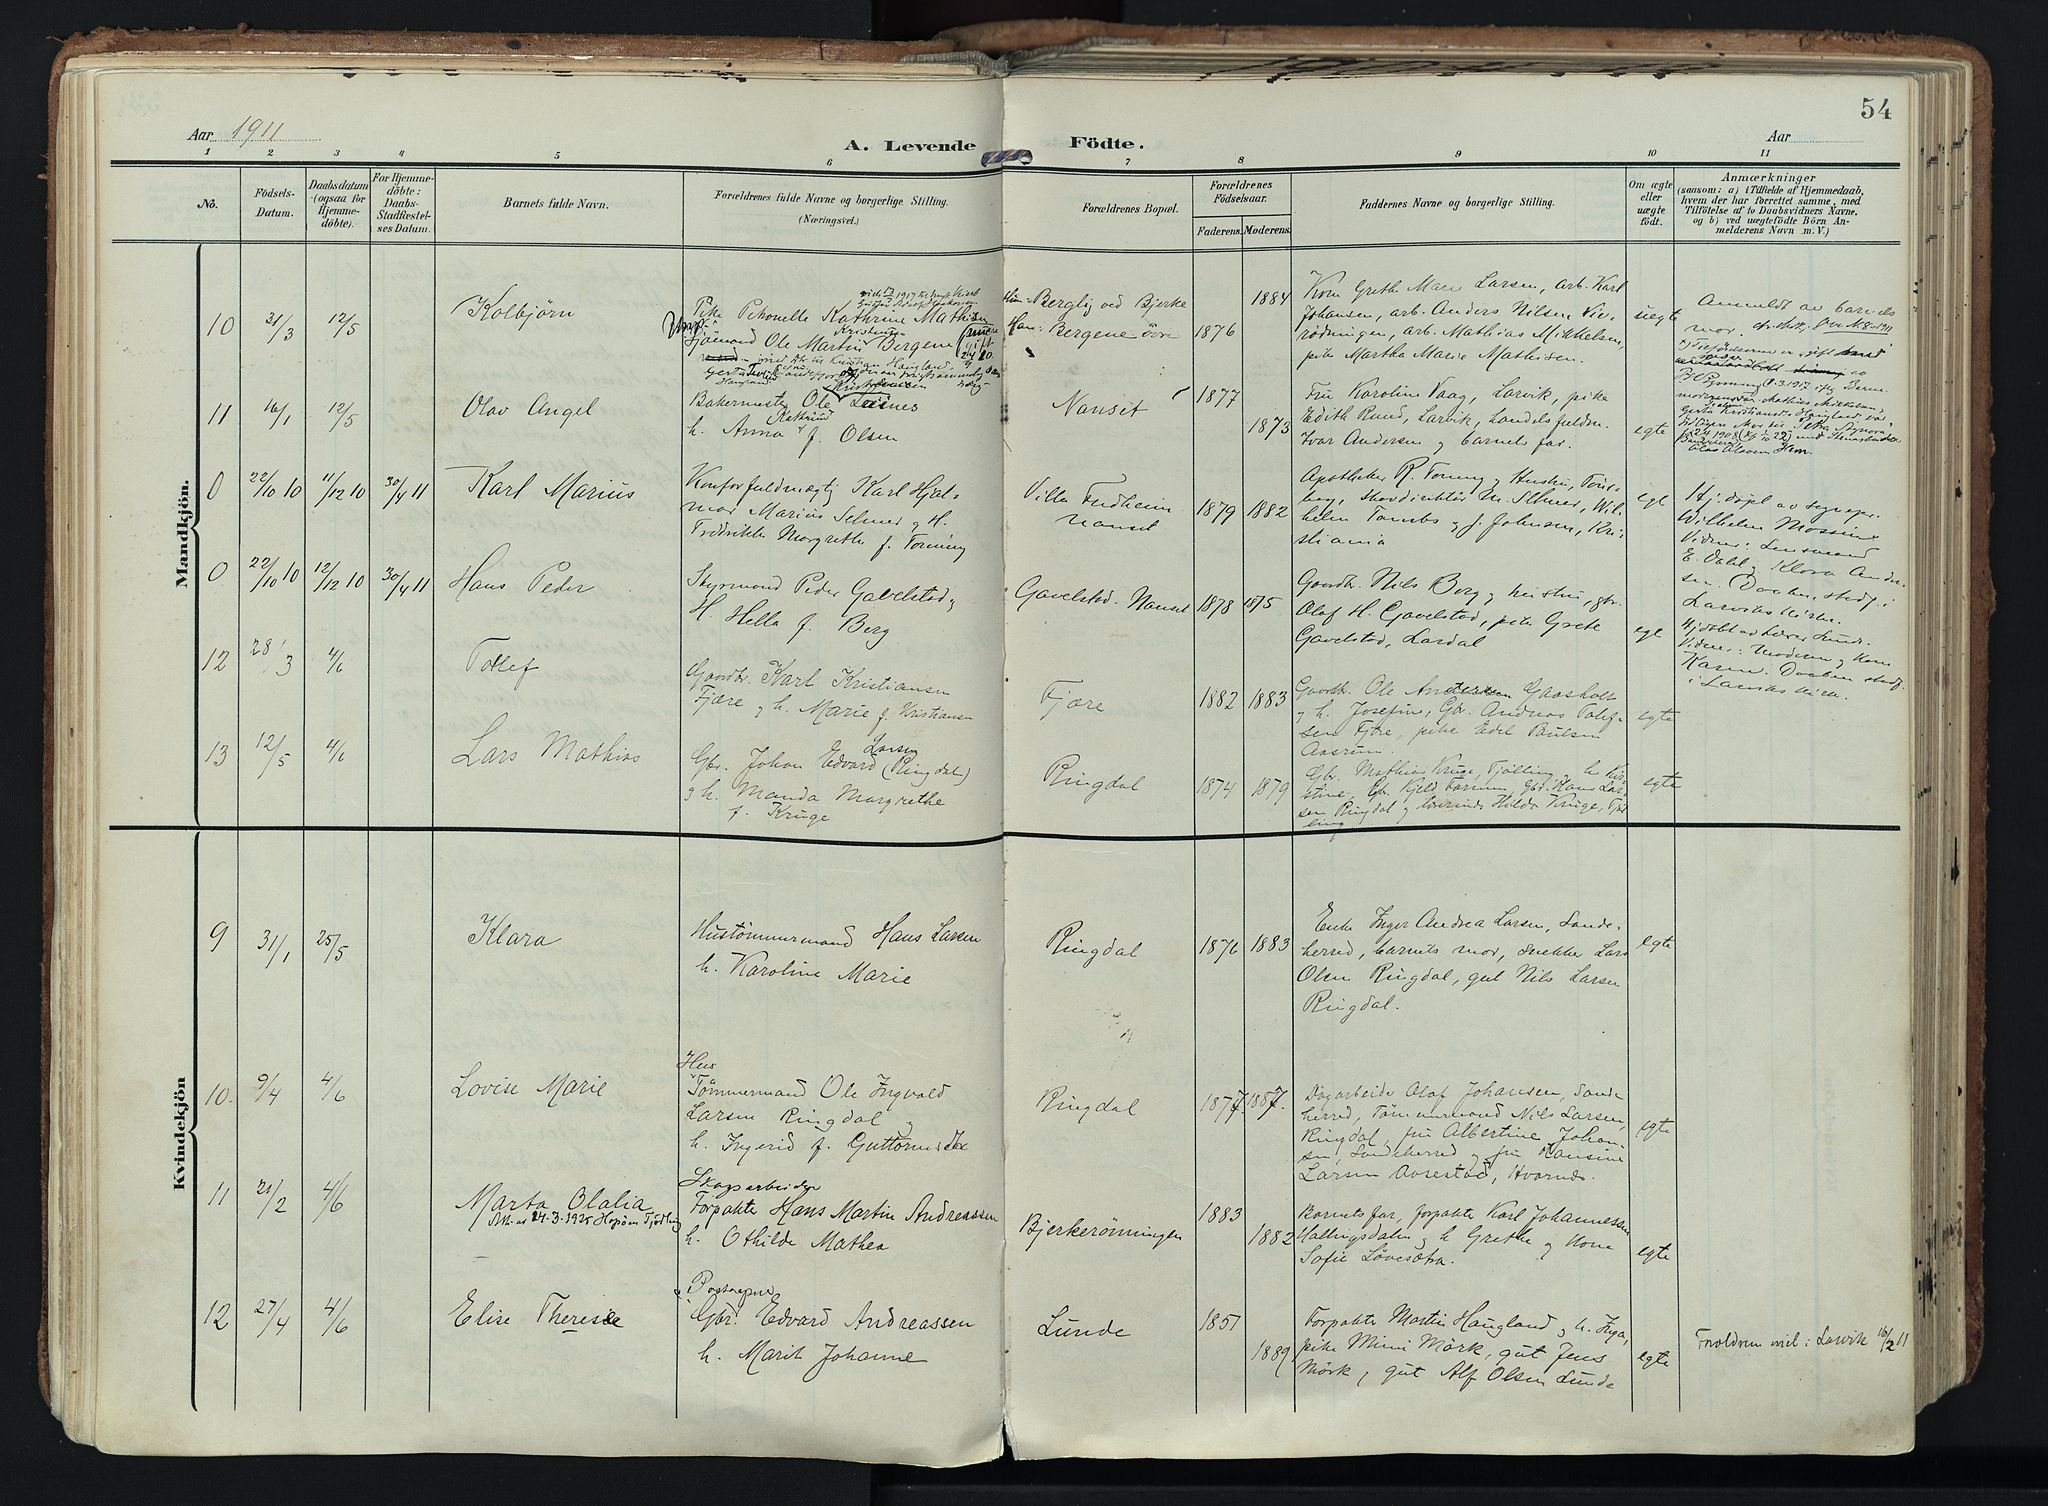 54
Aar 1911
A. Levende Födte.
Aar
1 2 3 4 5 6 7 8 9 10 11
No.
Födsels-
Datum.
Daabsdatum
(ogsaa for
Hjemme-
döbte).
For Hjemme-
döbte:
Daabs-
Stadfæstel-
ses Datum.
Barnets fulde Navn.
Forældrenes fulde Navne og borgerlige Stilling.
(Næringsvei.)
Forældrenes Bopæl.
Forældrenes
Födselsaar.
Faderens. Moderens.
Faddernes Navne og borgerlige Stilling.
Om ægte
eller
uægte
födt.
Anmærkninger
(saasom: a) i Tilfælde af Hjemmedaab,
hvem der har forrettet samme, med
Tilföielse af to Daabsvidners Navne,
og b) ved uægtefödte Börn An-
melderens Navn m. V.)
Mandkjön.
10 31/3 12/5 Kolbjörn
Pike Petronelle Kathrine Mathisen
Sjömand Ole Martin Kristensen Bergene
Berglig ved Bjerke
Bergene övre
1876 1884
Kone Grethe Marie Larsen, arb. Karl
Johansen, arb. Anders Nilsen Vie-
rödningen, arb. Mathias Mikkelsen,
pike Martha Marie Mathisen.
uegte
Anmeldt av barnets
mor.
11 16/1 12/5 Olav Angel
Bakermester Ole Kristensen
h. Anna Kathrine f. Olsen
Nanset
1877
1873
Fru Karoline Vaag, Larvik, pike
Edith Rund, Larvik, Handelsfuldm.
Ivar Andersen og barnets far.
egte
0 22/10 10 11/12 10 30/4 11 Karl Marius
Kontorfuldmægtig Karl Hjal-
mar Marius Selmer og H.
Fredrikke Margrethe f. Tonning
Villa Fredheim
Nanset
1879 1882
Apotheker R. Tonning og Hustru, Töns-
berg, Skovdirektör M. Selmer, Wil-
helm Tombs og J. Johnsen, Kri-
stiania
egte
Hj. döpt av sogнepr.
Wilhelm Mossine
Vidner: Lensmand
E. Dahl og Klara Ander-
sen. Daaben stadf. i
Larviks kirke.
0. 22/10 10 12/12 10 30/4 11 Hans Peder
Styrmand Peder Gavelstad og
H. Hella f. Berg
Gavelstad. Nanset
1878 1875
Gaardb. Nils Berg og hustru, gbr.
Olaf H. Gavelstad, pike Grete
Gavelstad, Lardal
egte
Vidner: Moderen og Kone
Karen. Daaben stadf.
i Larviks kirke.
12 28/3 4/6 Tollef
Gaardbr. Karl Kristiansen
Fjære og h. Marie f. Kristiansen
Fjære
1882 1883
Gaardb. Ole Andersen Gaasholt
og h. Josefine, Gbr. Andreas Tolef-
sen Fjære, pike Edel Paulsen
Aasrum.
egte
13 12/5 4/6 Lars Mathias
Gbr. Johan Edvard Larsen (Ringdal)
og h. Manda Margrethe
f. Kruge
Ringdal
1874 1879
Gbr. Mathias Kruge, Tjölling, h. Kri-
stine, Gbr. Kjeld Farmen, Gbr. Hans Lar-
sen Ringdal og lærerinde Hilda Kruge, Tjöl-
ling
egte
Kvindekjön
9 31/1 25/5 Klara
Hustömmermand Hans Larsen
h. Karoline Marie
Ringdal
1876 1883
Enke Inger Andrea Larsen, Sande-
herred, barnets mor, snekker Lars
Olsen Ringdal, gut Nils Larsen
Ringdal.
egte
10. 9/4 4/6 Lovise Marie
Hus
Tömmermand Ole Ingvald
Larsen Ringdal og
h. Ingerid f. Guttormsdtr
Ringdal
1877 1887.
Dagarbeider Olaf Johansen, Sande-
herred, Tömmermand Nils Larsen,
Ringdal, fru Albertine Johan-
sen, Sandeherred og fru Hansine
Larsen Aarestad, Hvarnes.
egte
11 21/2 4/6 Marta Olalia
Att. ut 24-3-1925 Tjölling
Skogsarbeider
Forpakter Hans Martin Andreassen
h. Othilde Mathea
Bjerkerönningen
1883
1882
Barnets far, forpakter Karl Johannessen
Hallingsdalen og h Grethe og Kone
Sofie Lövesætra.
egte
12 27/4 4/6 Elise Therese
Gbr. Edvard Andreassen
h. Marit Johanne
Lunde
1851
1889
Forpakter Martin Haugland og h. Inga,
pike Mimi Mörk, gut Jens
Mörk, gut Alf Olsen Lunde
egte
Forældrene viet i Larvik 16/2 11